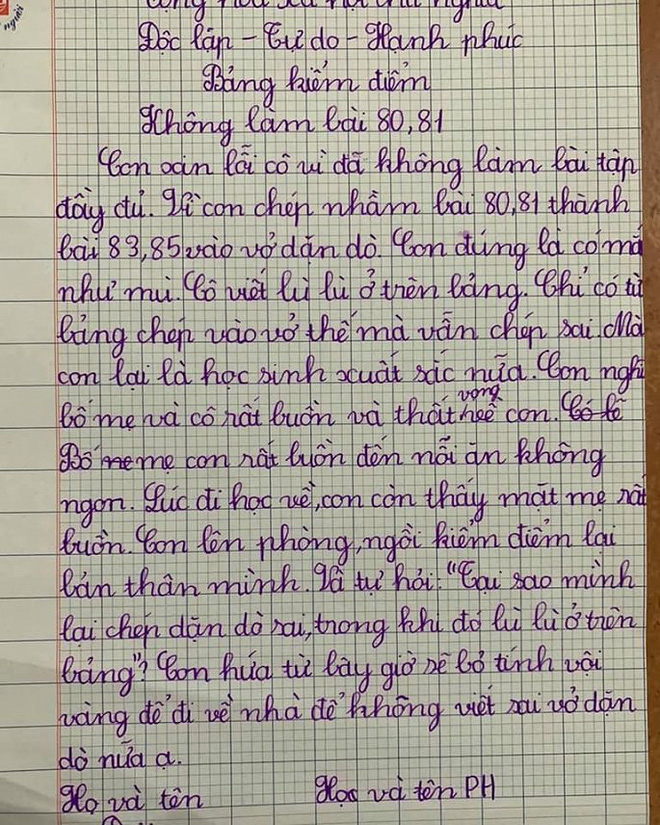 Cộng hòa xã hội chủ nghĩa
Độc lập - Tự do - Hạnh phúc
Bảng kiểm điểm
Không làm bài 80,81
Con xin lỗi cô vì đã không làm bài tập
đầy đủ. Vì con chép nhầm bài 80,81 thành
bài 83,85 vào vở dặn dò. Con đúng là có mắ
như mù. Cô viết lù lù ở trên bảng. Chỉ có từ
bảng chép vào vở thế mà vẫn chép sai. Mà
con lại là học sinh xuất sắc nữa. Con nghĩ
bố mẹ và cô rất buồn và thất vọng về con. Có lẽ
Bố me mẹ con rất buồn đến nỗi ăn không
ngon. Lúc đi học về, con còn thấy mặt mẹ rất
buồn. Con lên phòng, ngồi kiểm điểm lại
bản thân mình. Và tự hỏi: "Tại sao mình
lại chép dặn dò sai, trong khi đó lù lù ở trên
bảng"? Con hứa từ bây giờ sẽ bỏ tính vội
vàng để đi về nhà để không viết sai vở dặn
dò nữa ạ.
Họ và tên Họ và tên PH